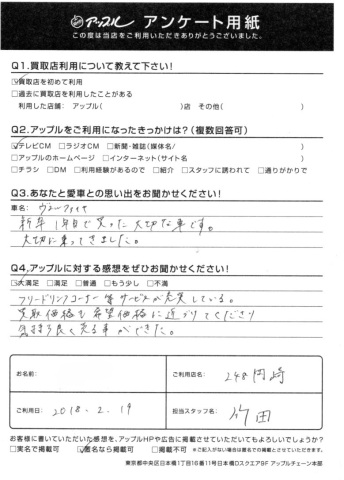 アップル アンケート用紙
この度は当店をご利用いただきありがとうございました。
Q1.買取店利用について教えて下さい!
☑買取店を初めて利用
□過去に買取店を利用したことがある
利用した店舗: アップル( )店 その他( )
Q2.アップルをご利用になったきっかけは?(複数回答可)
☑テレビCM □ラジオCM □新聞・雑誌(媒体名/ )
□アップルのホームページ □インターネット(サイト名 )
□チラシ □DM □利用経験があるので □紹介 □スタッフに誘われて □通りがかりで
Q3.あなたと愛車との思い出をお聞かせください!
車名: ヴェルファイヤ
新車1年目で買った大切な車です。
大切に乗ってきました。
Q4.アップルに対する感想をぜひお聞かせください!
☑大満足 □満足 □普通 □もう少し □不満
フリードリンクコーナー等サービスが充実している。
買取価格も希望価格に近づけてくださり
気持ち良く売る事ができた。
お名前:
ご利用店名: 248岡崎
ご利用日: 2018.2.19
担当スタッフ名: 竹田
お客様に書いていただいた感想を、アップルHPや広告に掲載させていただいてもよろしいでしょうか?
□実名で掲載可 ☑匿名なら掲載可 □掲載不可 ※ご記入がない場合は匿名での掲載とさせていただきます。
東京都中央区日本橋1丁目16番11号日本橋Dスクエア9F アップルチェーン本部